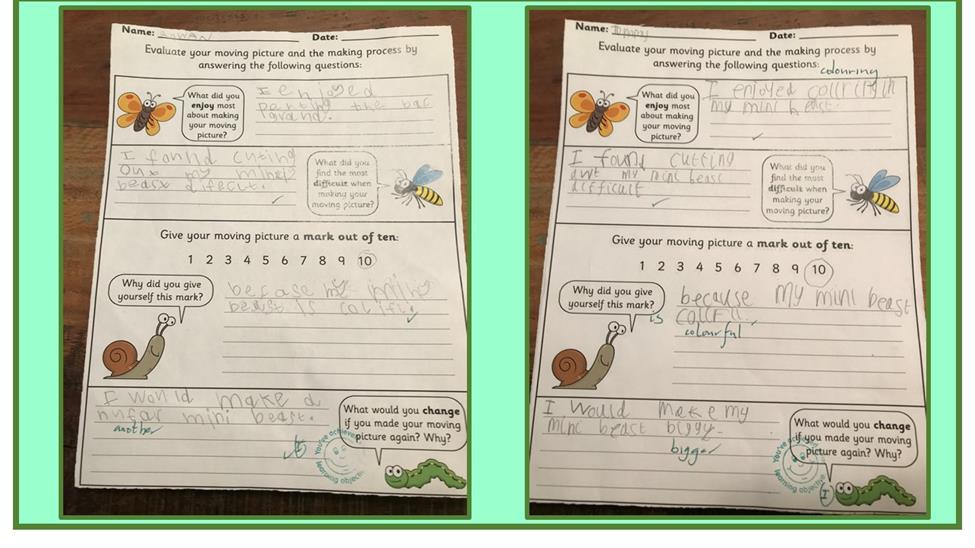 Name:
Date:
Evaluate your moving picture and the making process by
answering the following questions:
What did you
enjoy most
about making
your moving
picture?
I enjoed
the bac
I found cuting
my
beast
What did you
find the most
difficult when
making your
moving picture?
Give your moving picture a mark out of ten:
1 2 3 4 5 6 7 8 9 10
Why did you give
yourself this mark?
my mini
beast is
I would make a
mini beast.
another
What would you change
if you made your moving
picture again? Why?
learning objective
Name:
Date:
Evaluate your moving picture and the making process by
answering the following questions:
colouring
What did you
enjoy most
about making
your moving
picture?
I enjoyed
my mini beast.
I found cutting
my mini beast
difficult
What did you
find the most
difficult when
making your
moving picture?
Give your moving picture a mark out of ten:
1 2 3 4 5 6 7 8 9 10
Why did you give
yourself this mark?
because my mini beast
is
colourful
I would make my
mini beast biggy.
bigger
What would you change
if you made your moving
picture again? Why?
learning objective
I